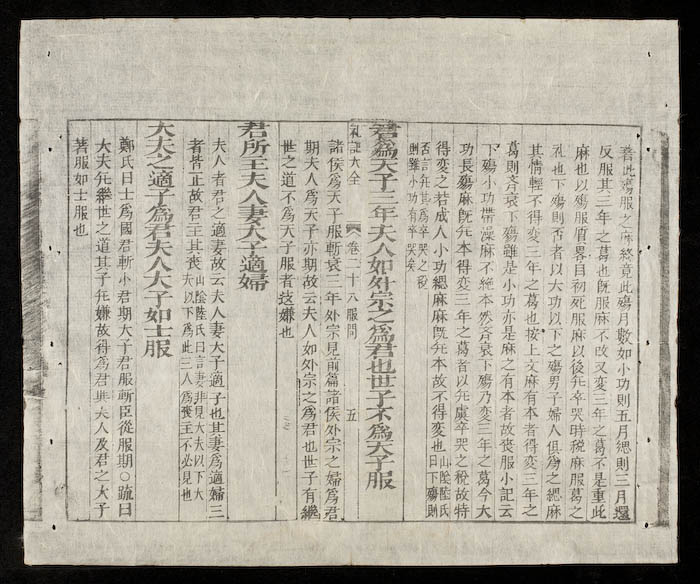 著此殤服之麻終竟此殤月數如小功則五月緦則三月還
反服其三年之葛也旣服麻不改又变三年之葛不是重此
麻也以殤服質畧自初死服麻以後无卒哭時稅麻服葛之
礼也下殤則否者以大功以下之殤男子婦人俱爲之緦麻
其情輕不得变三年之葛也按上文麻有本者得变三年之
葛則斉衰下殤雖是小功亦是麻之有本者故喪服小記云
下殤小功帶澡麻不絶本然斉衰下殤乃变三年之葛今大
功長殤麻旣无本得变三年之葛者以无虞卒哭之稅故特
得变之若成人小功緦麻麻旣无本故不得变也山陰陸氏曰下殤則
否言无其爲卒哭之稅
則雖小功有卒哭矣
君爲天子三年夫人如外宗之爲君也世子不爲天子服
礼記大全 卷二十八服問 五
諸侯爲天子服斬衰三年外宗見前篇諸侯外宗之婦爲君
期夫人爲天子亦期故云夫人如外宗之爲君也世子有繼
世之道不爲天子服者逺嫌也
君所主夫人妻大子適婦
夫人者君之適妻故云夫人妻大子適子也其妻爲適婦三
者皆正故君主其喪山陰陸氏曰言妻非見大夫以下大
夫以下爲此三人爲喪主不必見也
大夫之適子爲君夫人大子如士服
鄭氏曰士爲國君斬小君期大子君服斬臣從服期○疏曰
大夫无繼世之道其子无嫌故得爲君與夫人及君之大子
著服如士服也